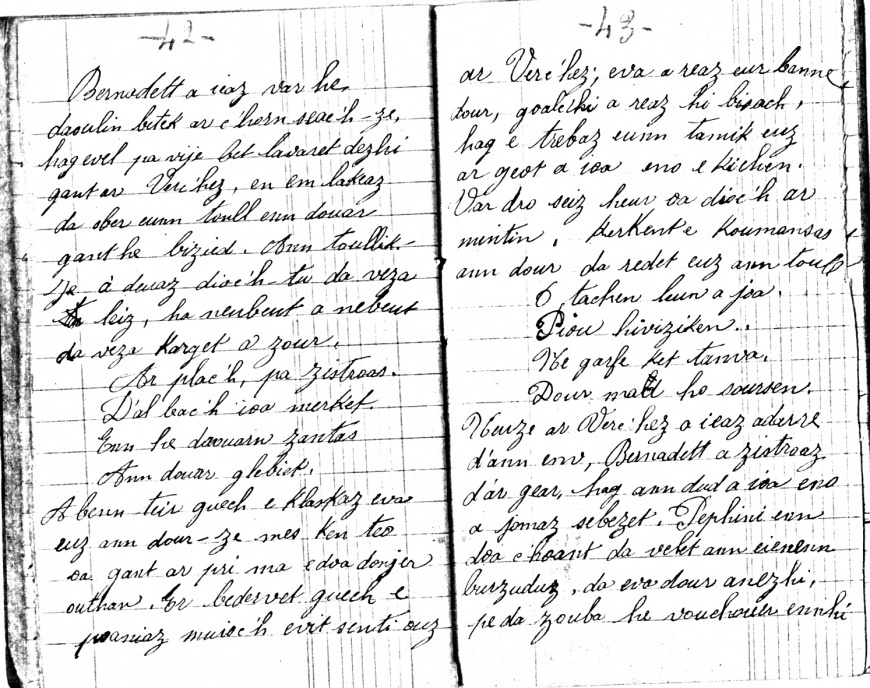 -42-
Bernadett a ieaz var he
daoulin betek ar c'horn seac'h-ze,
hag evel pa vije bet lavaret dezhi
gant ar Verc'hez, en em lakeaz
da ober eunn toull enn douar
gant he bizied. Ann toullik-
ze a deuaz dioc'h-tu da veza
leiz, ha neubeut a nebeut
da veza karget a zour.
Ar plac'h, pa zistroas.
D'al lac'h ioa merket.
Enn he daouarn zantas
Ann douar glebiet.
A benn teir guech e klaskaz eva
euz ann dour-ze mes ken teo
oa gant ar pri ma edoa donjer
outhan. Er bedervet guech e
poaniaz muioc'h evit senti ouz
-43-
ar Verc'hez; eva a reaz eur banne
dour, goalc'hi a reaz hi bizach,
hag e trebaz eunn tamik euz
ar geot a ioa eno e kichen.
Var dro seiz heur oa dioc'h ar
mintin. Kerkent e koumansas
ann dour da redet euz ann toull
O tachen leun a joa.
Piou hiviziken.
Ne garfe ket tanva.
Dour mad ho sourсen.
Neuze ar Verc'hez a ieaz adarre
d'ann env, Bernadett a zistroaz
d'ar gear, hag ann dud a ioa eno
a jomaz sebezet. Pephini enn
doa c'hoant da velet ann eienenn
burzuduz, da eva dour anezhi,
pe da zouba he vouchouer ennhi